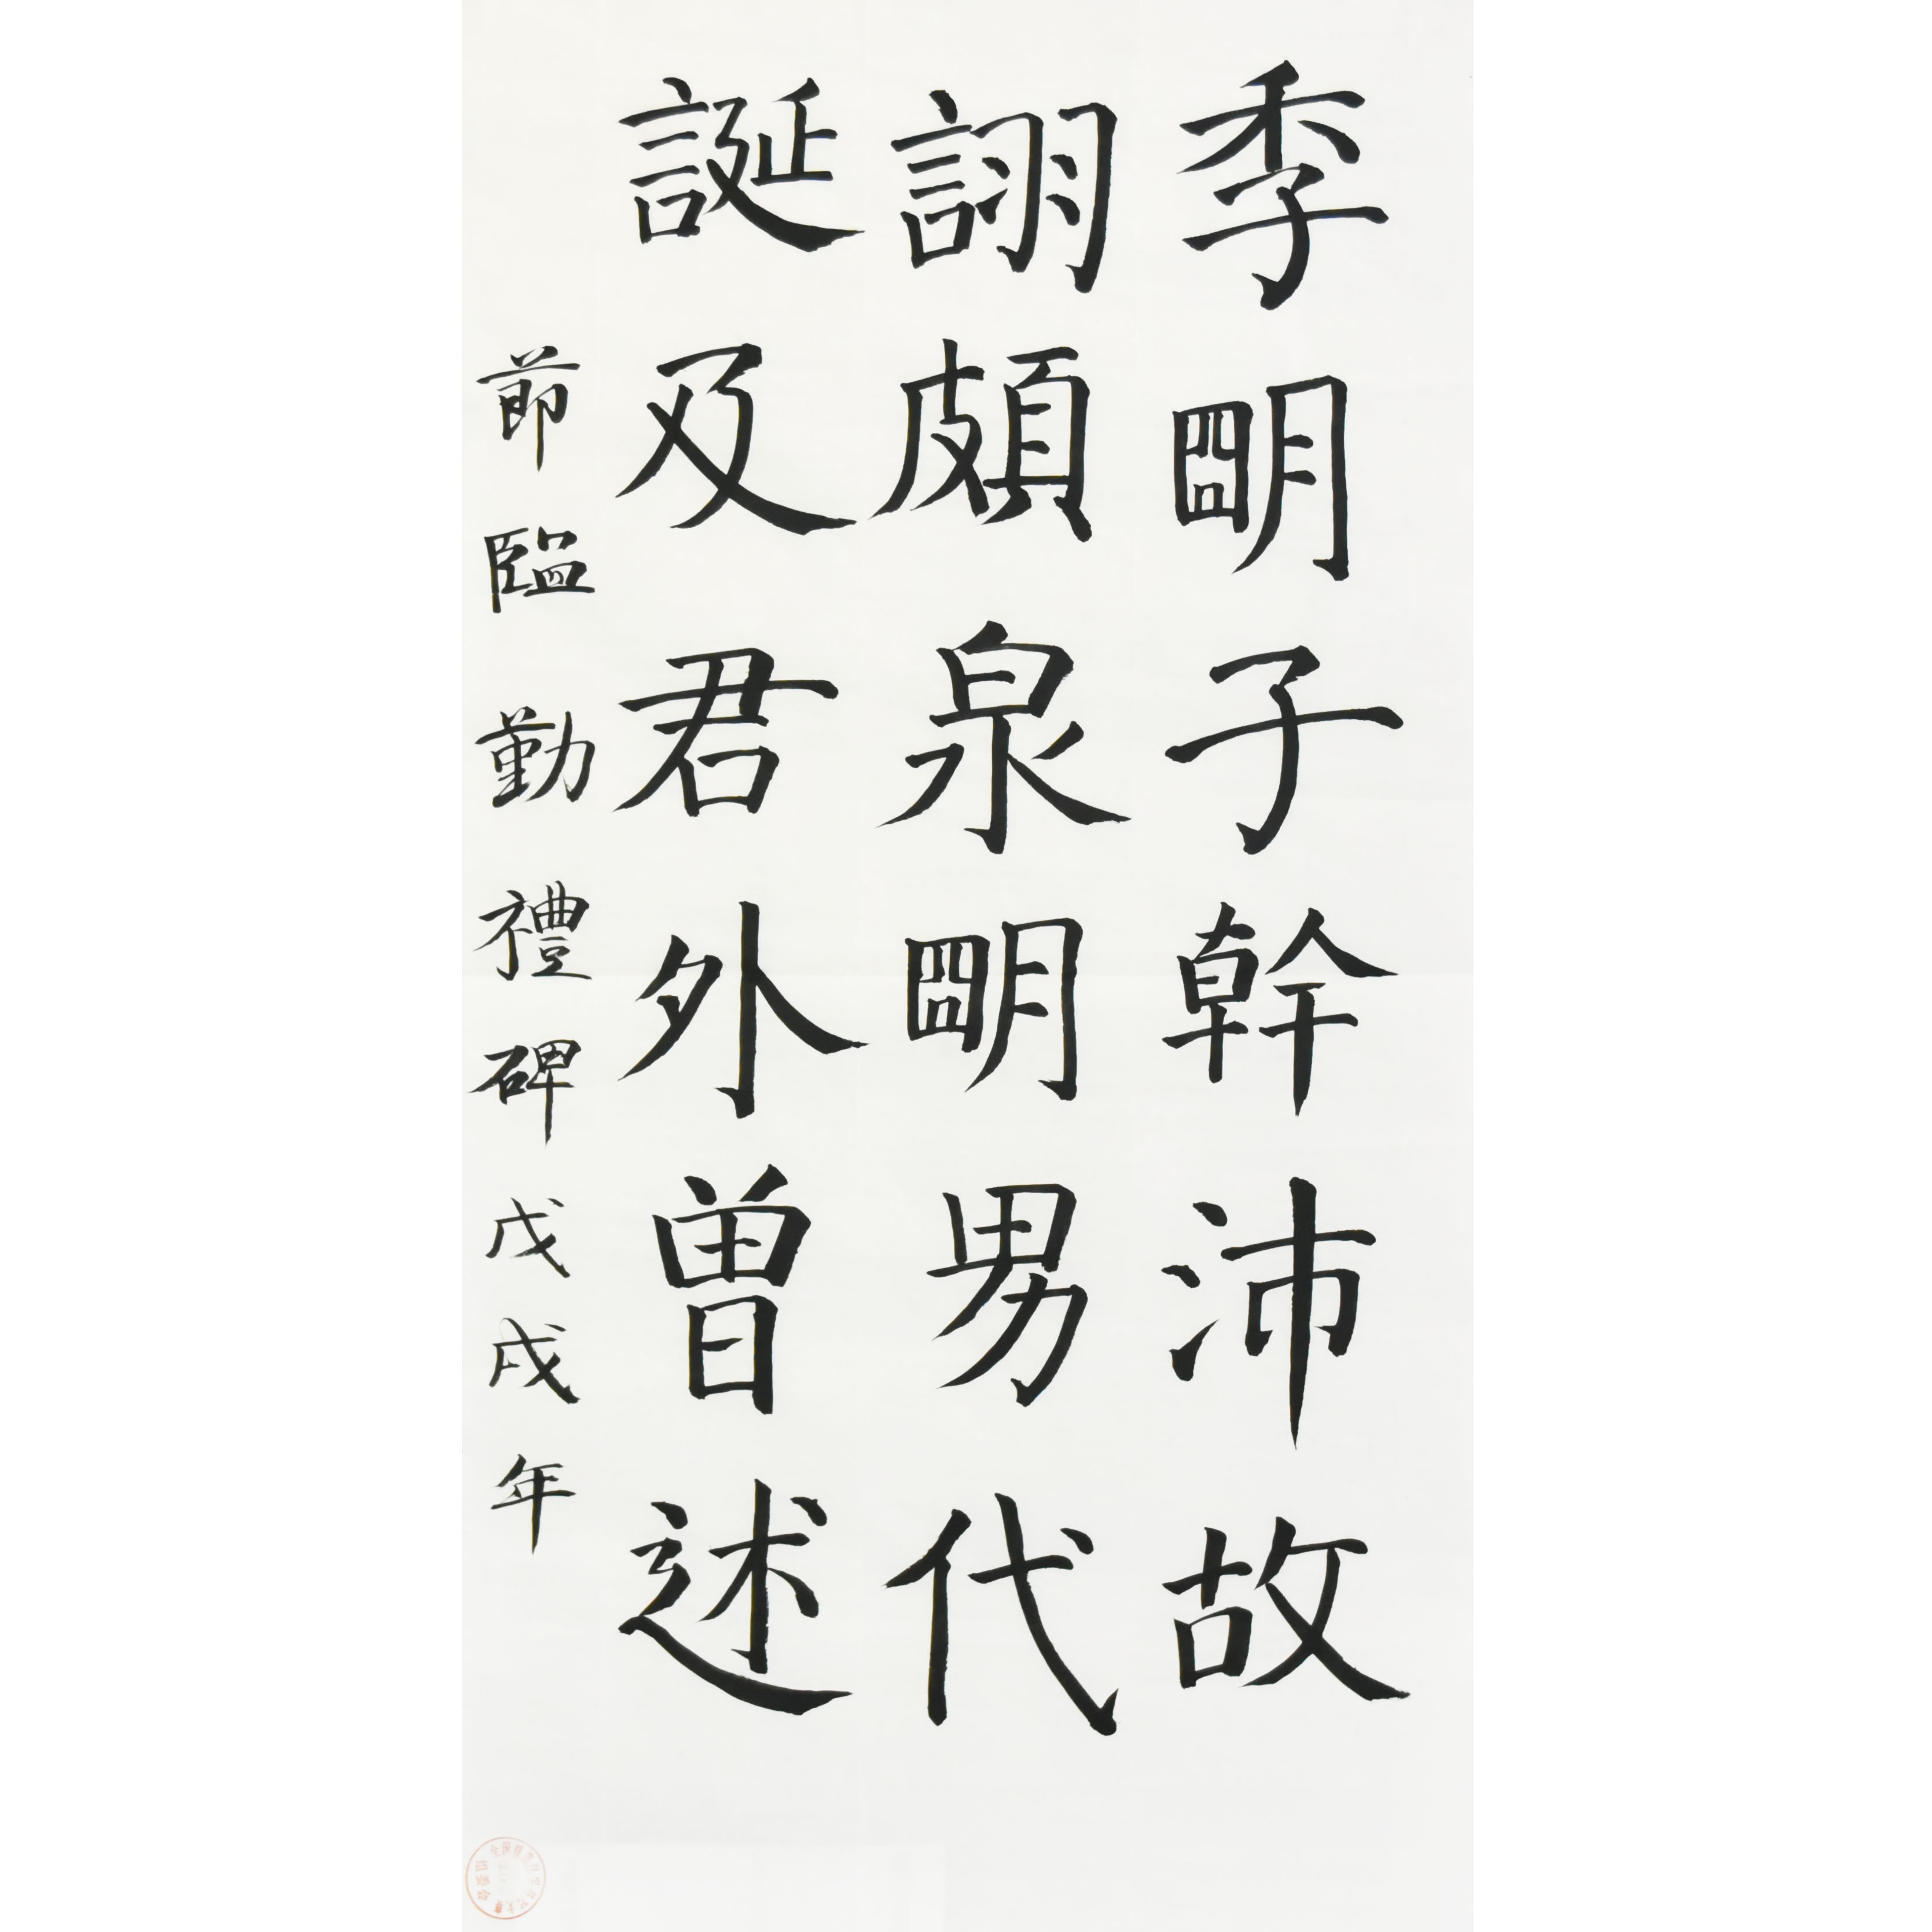 季明子幹沛故
詡頗泉明男代
誕及君外曽述
節臨勤禮碑戊戌年